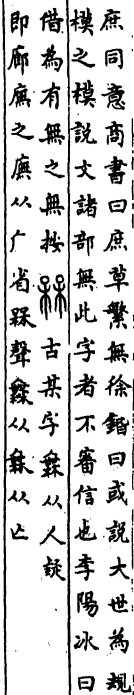 庶同意商書曰庶草繁無徐鍇曰或說大世為規
模之模說文諸部無此字者不審信也李陽冰曰
借為有無之無按古某字从人
即廊廡之廡从广省聲从从亡